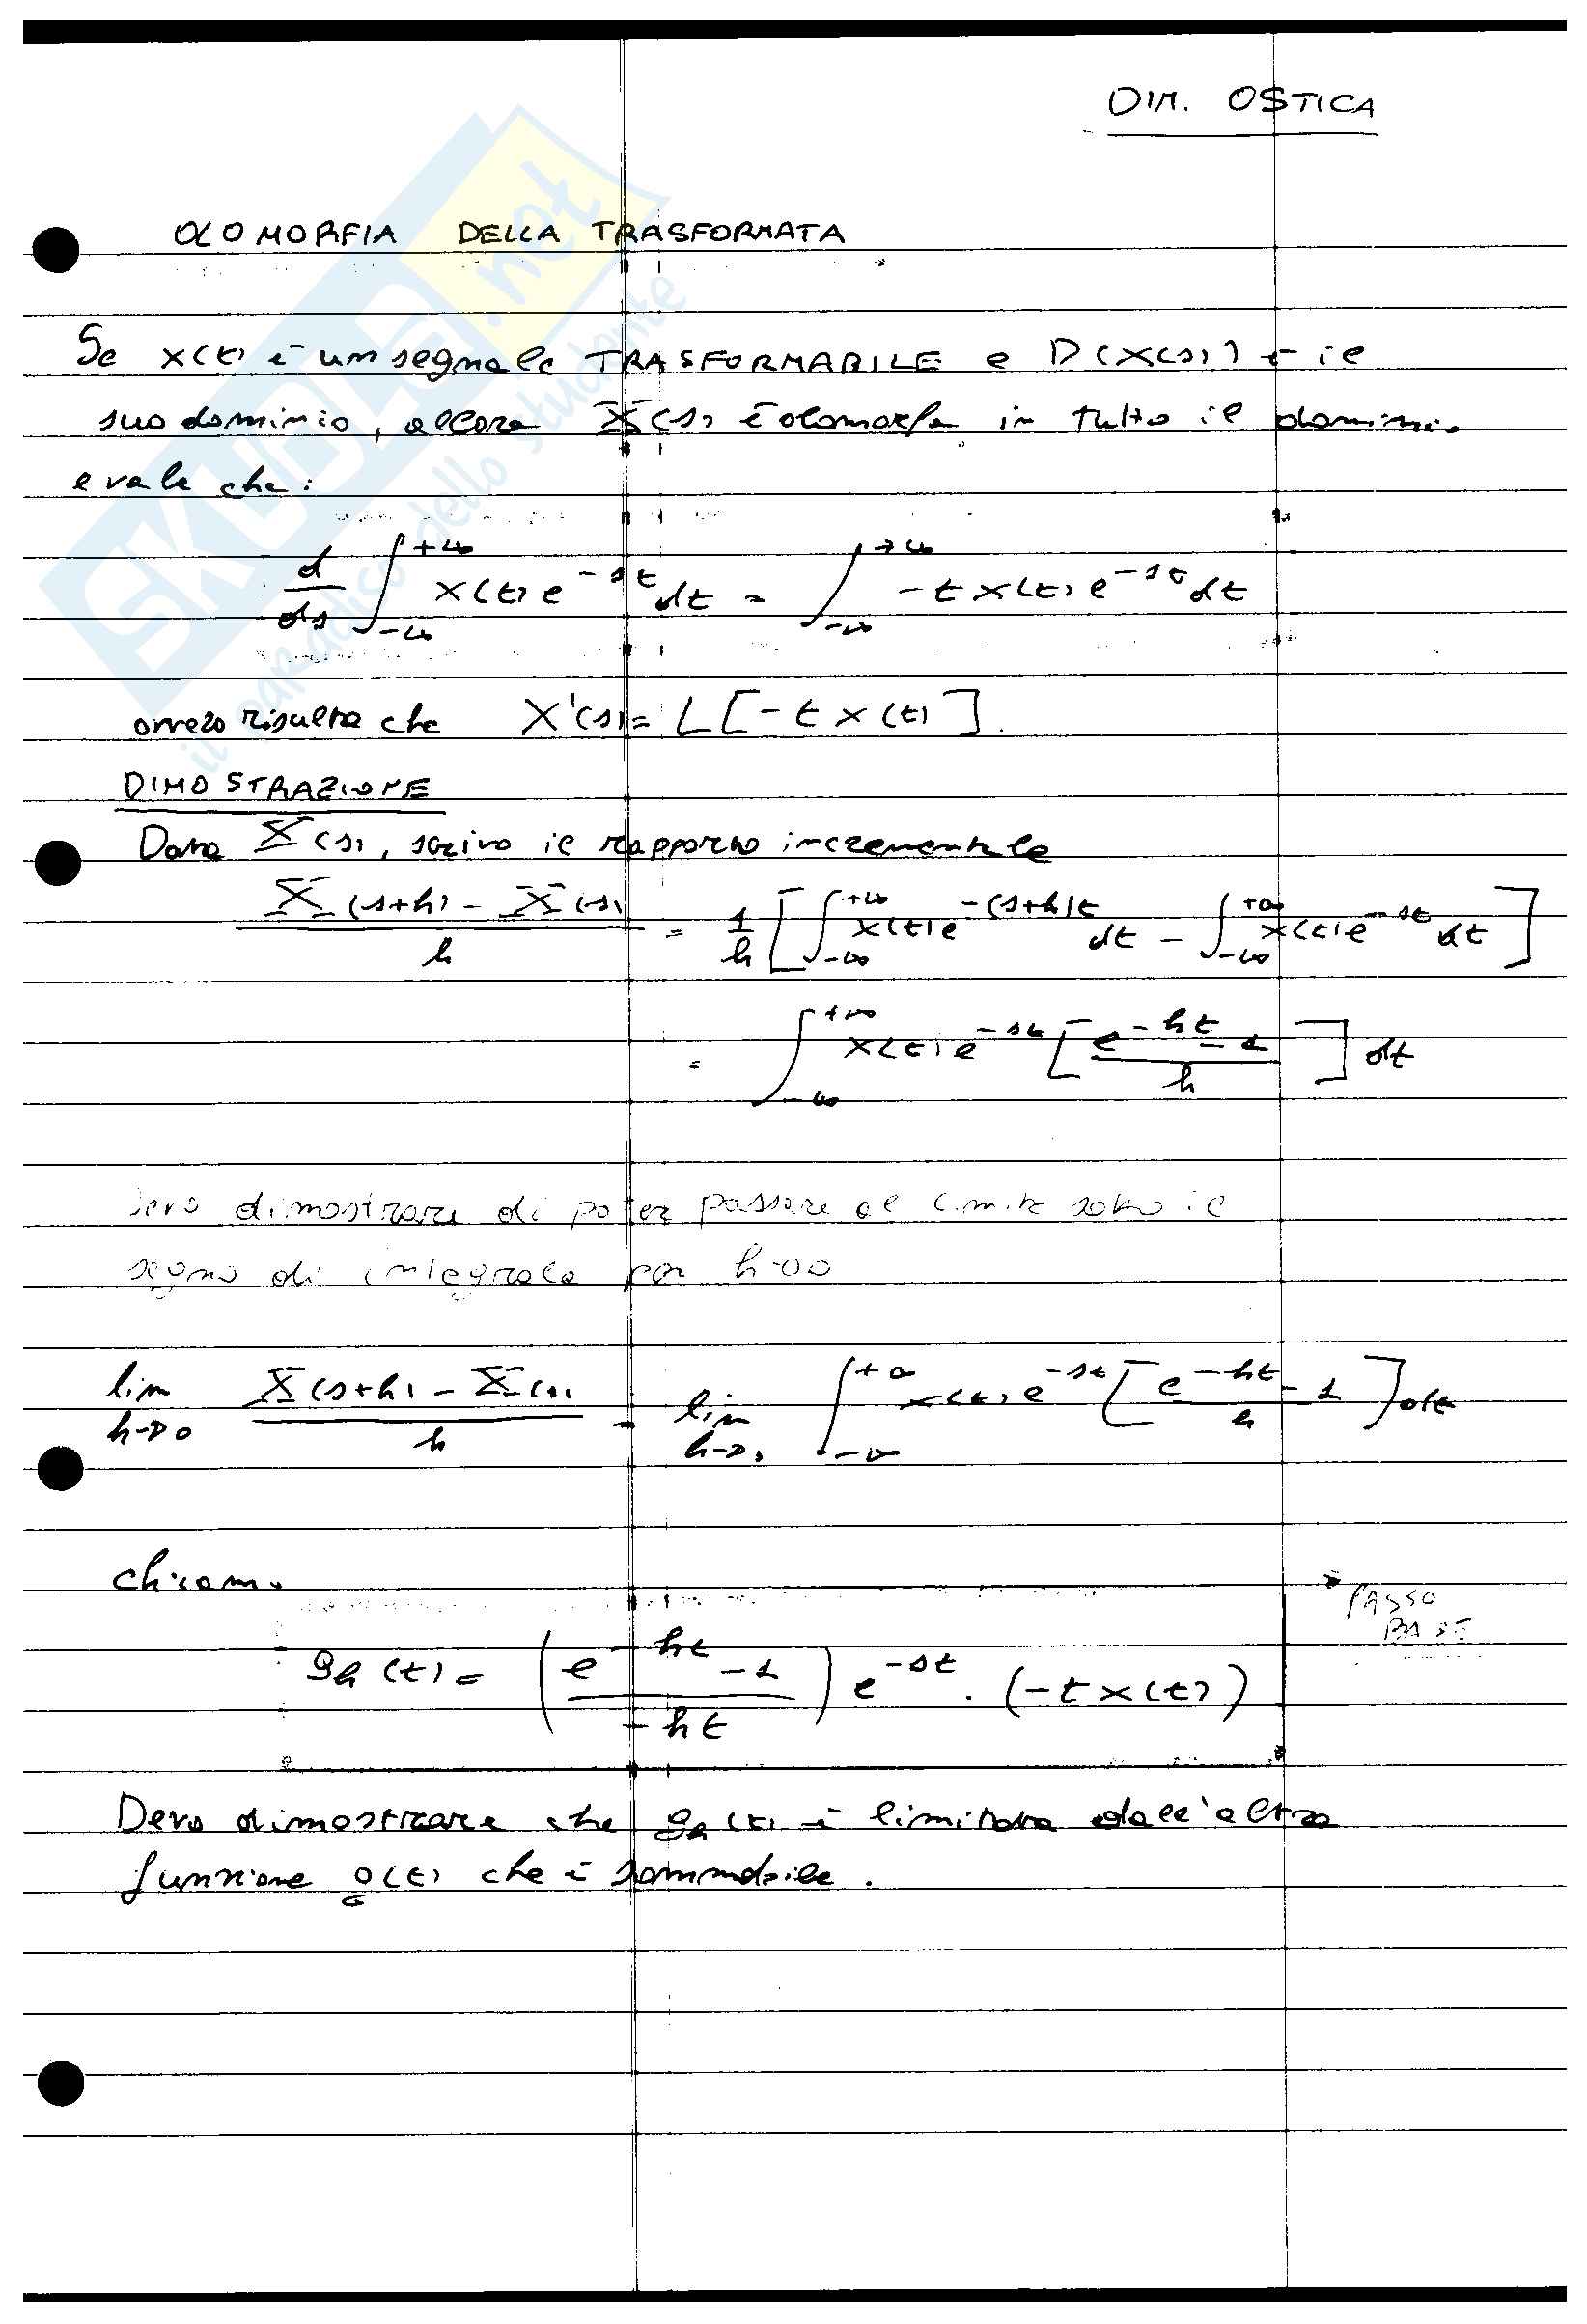 DIM. OSTICA
OLOMORFIA DELLA TRASFORMATA
Se x(t) è un segnale TRASFORMABILE e D(X(s)) è il
suo dominio, allora X(s) è olomorfa in tutto il dominio
e vale che:
d/ds ∫_{-∞}^{+∞} x(t) e^{-st} dt = ∫_{-∞}^{+∞} -t x(t) e^{-st} dt
ovvero risulta che X'(s) = L[-t x(t)].
DIMOSTRAZIONE
Data X(s), scrivo il rapporto incrementale
(X(s+h) - X(s))/h = 1/h [∫_{-∞}^{+∞} x(t) e^{-(s+h)t} dt - ∫_{-∞}^{+∞} x(t) e^{-st} dt]
= ∫_{-∞}^{+∞} x(t) e^{-st} [(e^{-ht} - 1)/h] dt
Devo dimostrare di poter passare al limite sotto il
segno di integrale per h→0
lim_{h→0} (X(s+h) - X(s))/h = lim_{h→0} ∫_{-∞}^{+∞} x(t) e^{-st} [(e^{-ht} - 1)/h] dt
chiamo
→ PASSO
BASE
g_h(t) = ((e^{-ht} - 1)/(-ht)) e^{-st} · (-t x(t))
Devo dimostrare che g_h(t) è limitata dall'altra
funzione g(t) che è sommabile.
SKUOLA.net
il paradiso dello studente